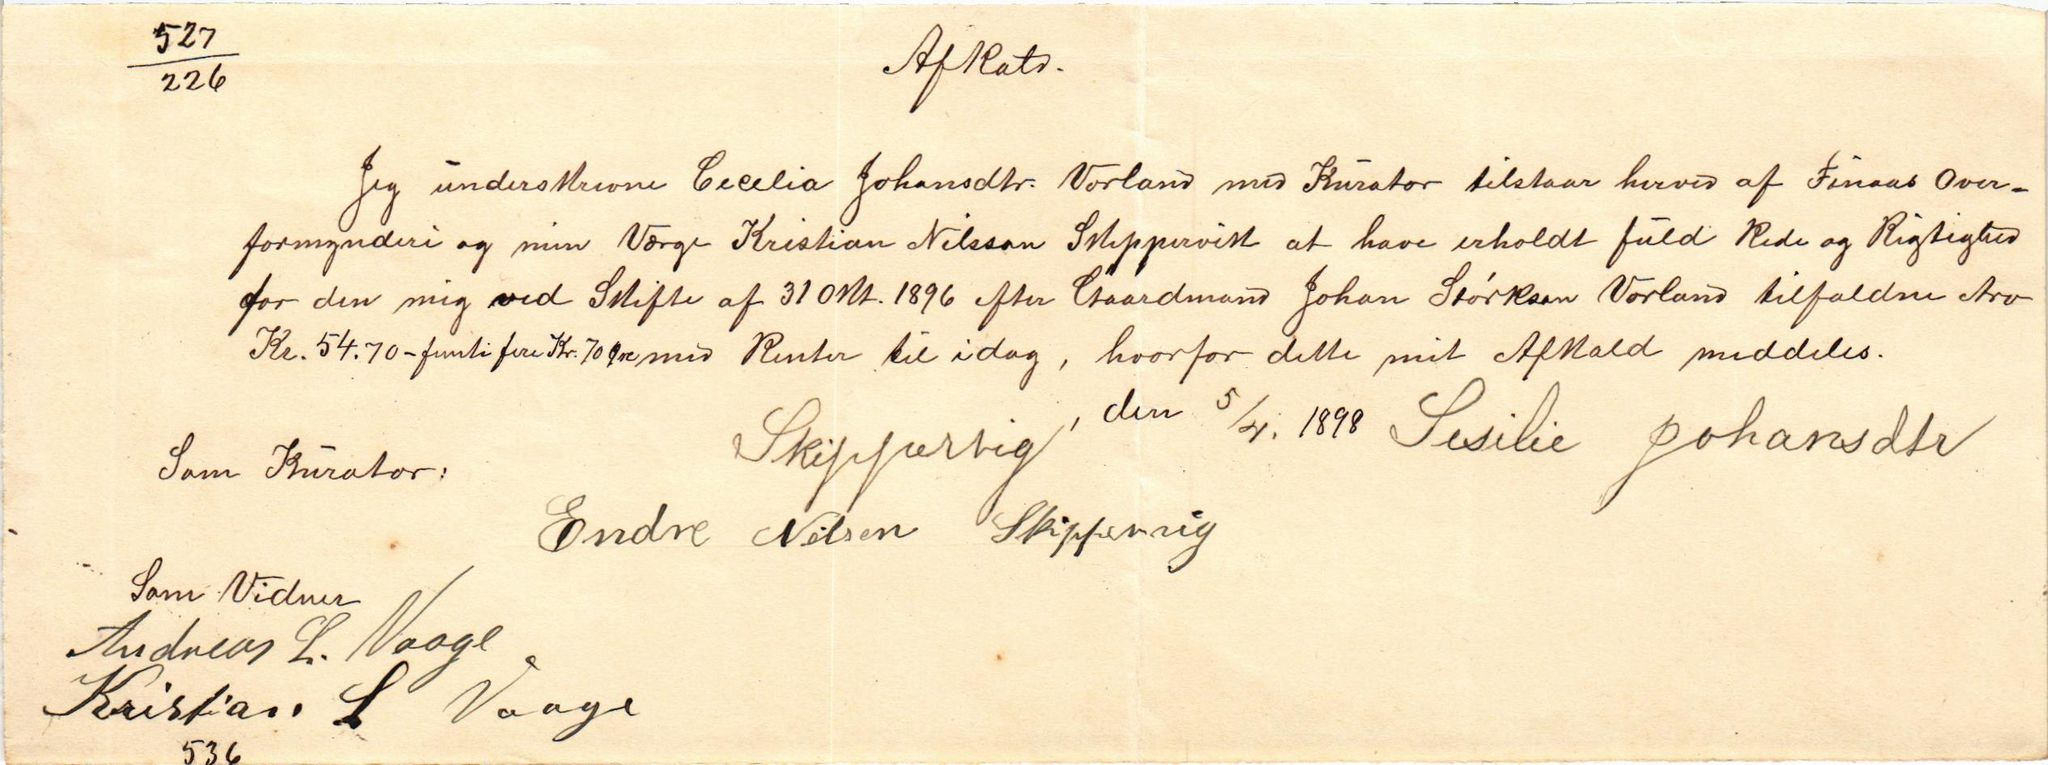 527
226
Afkald.
Jeg underskrevne Cecelia Johansdtr. Vorland med Kurator tilstaar herved af Finaas Over-
formynderi og min Værge Kristian Nilsson Skippervik at have erholdt fuld Rede og Rigtighed
for den mig ved Skifte af 31 Okt. 1896 efter Gaardmand Johan Störkson Vorland tilfaldne Arv
Kr. 54.70 - femti fire Kr. 70 Øre med Renter til idag, hvorfor dette mit Afkald meddeles.
Skippervig, den 5/4. 1898 Sesilie Johansdtr
Som Kurator:
Endre Nilsen Skippervig
Som Vidner
Andreas L. Vaage
Kristian L Vaage
536